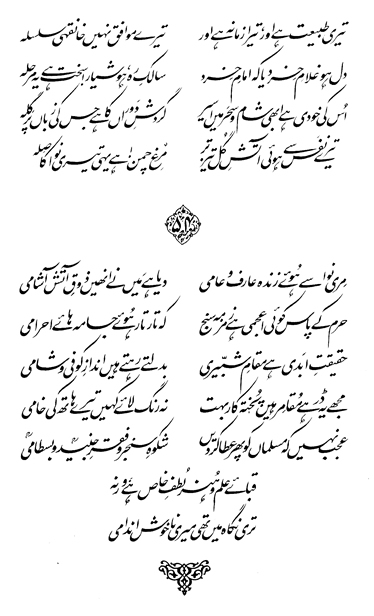 تیری طبیعت ہے اور، تیرا زمانہ ہے اور تیرے موافق نہیں خانقہی سلسلہ
دل ہو غلامِ خرد یا کہ امامِ خرد سالکِ رہ، ہوشیار! سخت ہے یہ مرحلہ
اُس کی خودی ہے ابھی شام و سحر میں اسیر گردشِ دَوراں کا ہے جس کی زباں پر گلہ
تیرے نفس سے ہوئی آتشِ گل تیز تر مرغِ چمن! ہے یہی تیری نوا کا صلہ
۵۴
مری نوا سے ہُوئے زندہ عارف و عامی دیا ہے مَیں نے انھیں ذوقِ آتش آشامی
حرم کے پاس کوئی اعجمی ہے زمزمہ سنج کہ تار تار ہُوئے جامہ ہائے احرامی
حقیقتِ ابدی ہے مقامِ شبیری بدلتے رہتے ہیں اندازِ کوفی و شامی
مجھے یہ ڈر ہے مُقامِر ہیں پُختہ کار بہت نہ رنگ لائے کہیں تیرے ہاتھ کی خامی
عجب نہیں کہ مسلماں کو پھر عطا کر دیں شکوہِ سنجر و فقرِ جنیدؒ و بسطامیؒ
قبائے علم و ہنر لُطفِ خاص ہے، ورنہ
تری نگاہ میں تھی میری ناخوش اندامی